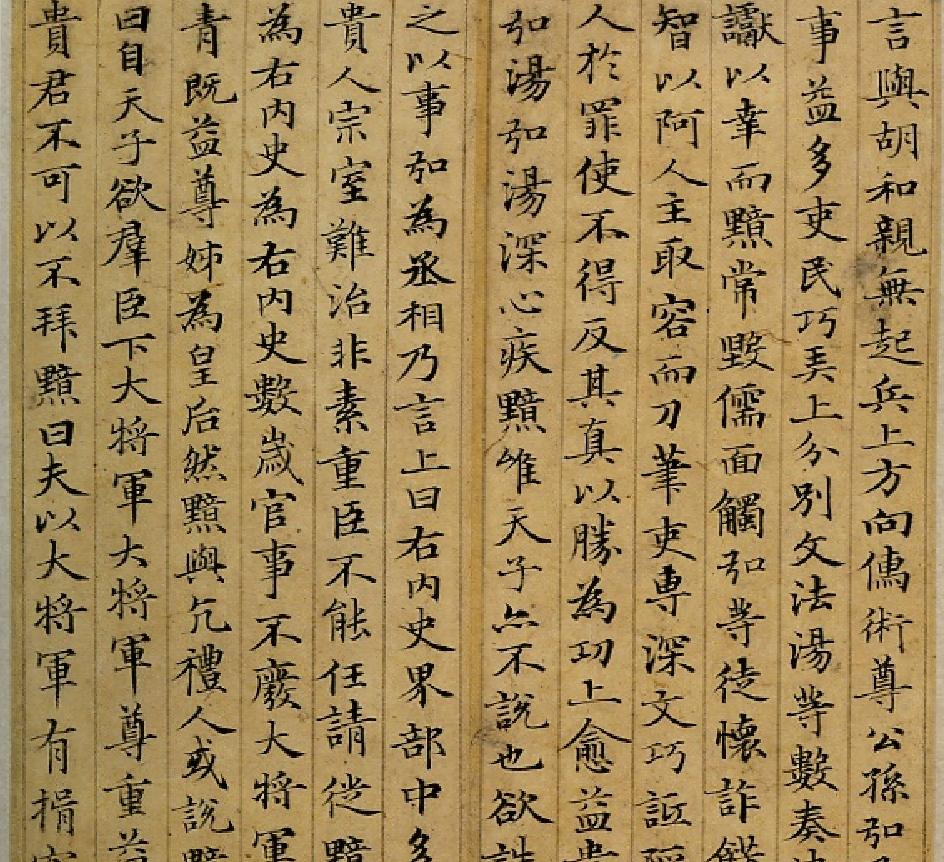 言與胡和親無起兵上方向儒術尊公孫弘
事益多吏民巧弄上分別文法湯等數奏
讞以幸而黯常毀儒面觸弘等徒懷詐飾
智以阿人主取容而刀筆吏專深文巧詆陷
人於罪使不得反其真以勝為功上愈益貴
弘湯弘湯深心疾黯唯天子亦不說也欲誅
之以事弘為丞相乃言上曰右內史界部中多
貴人宗室難治非素重臣不能任請徙黯
為右內史為右內史數歲官事不廢大將軍
青既益尊姊為皇后然黯與亢禮人或說黯
曰自天子欲羣臣下大將軍大將軍尊重益
貴君不可以不拜黯曰夫以大將軍有揖客